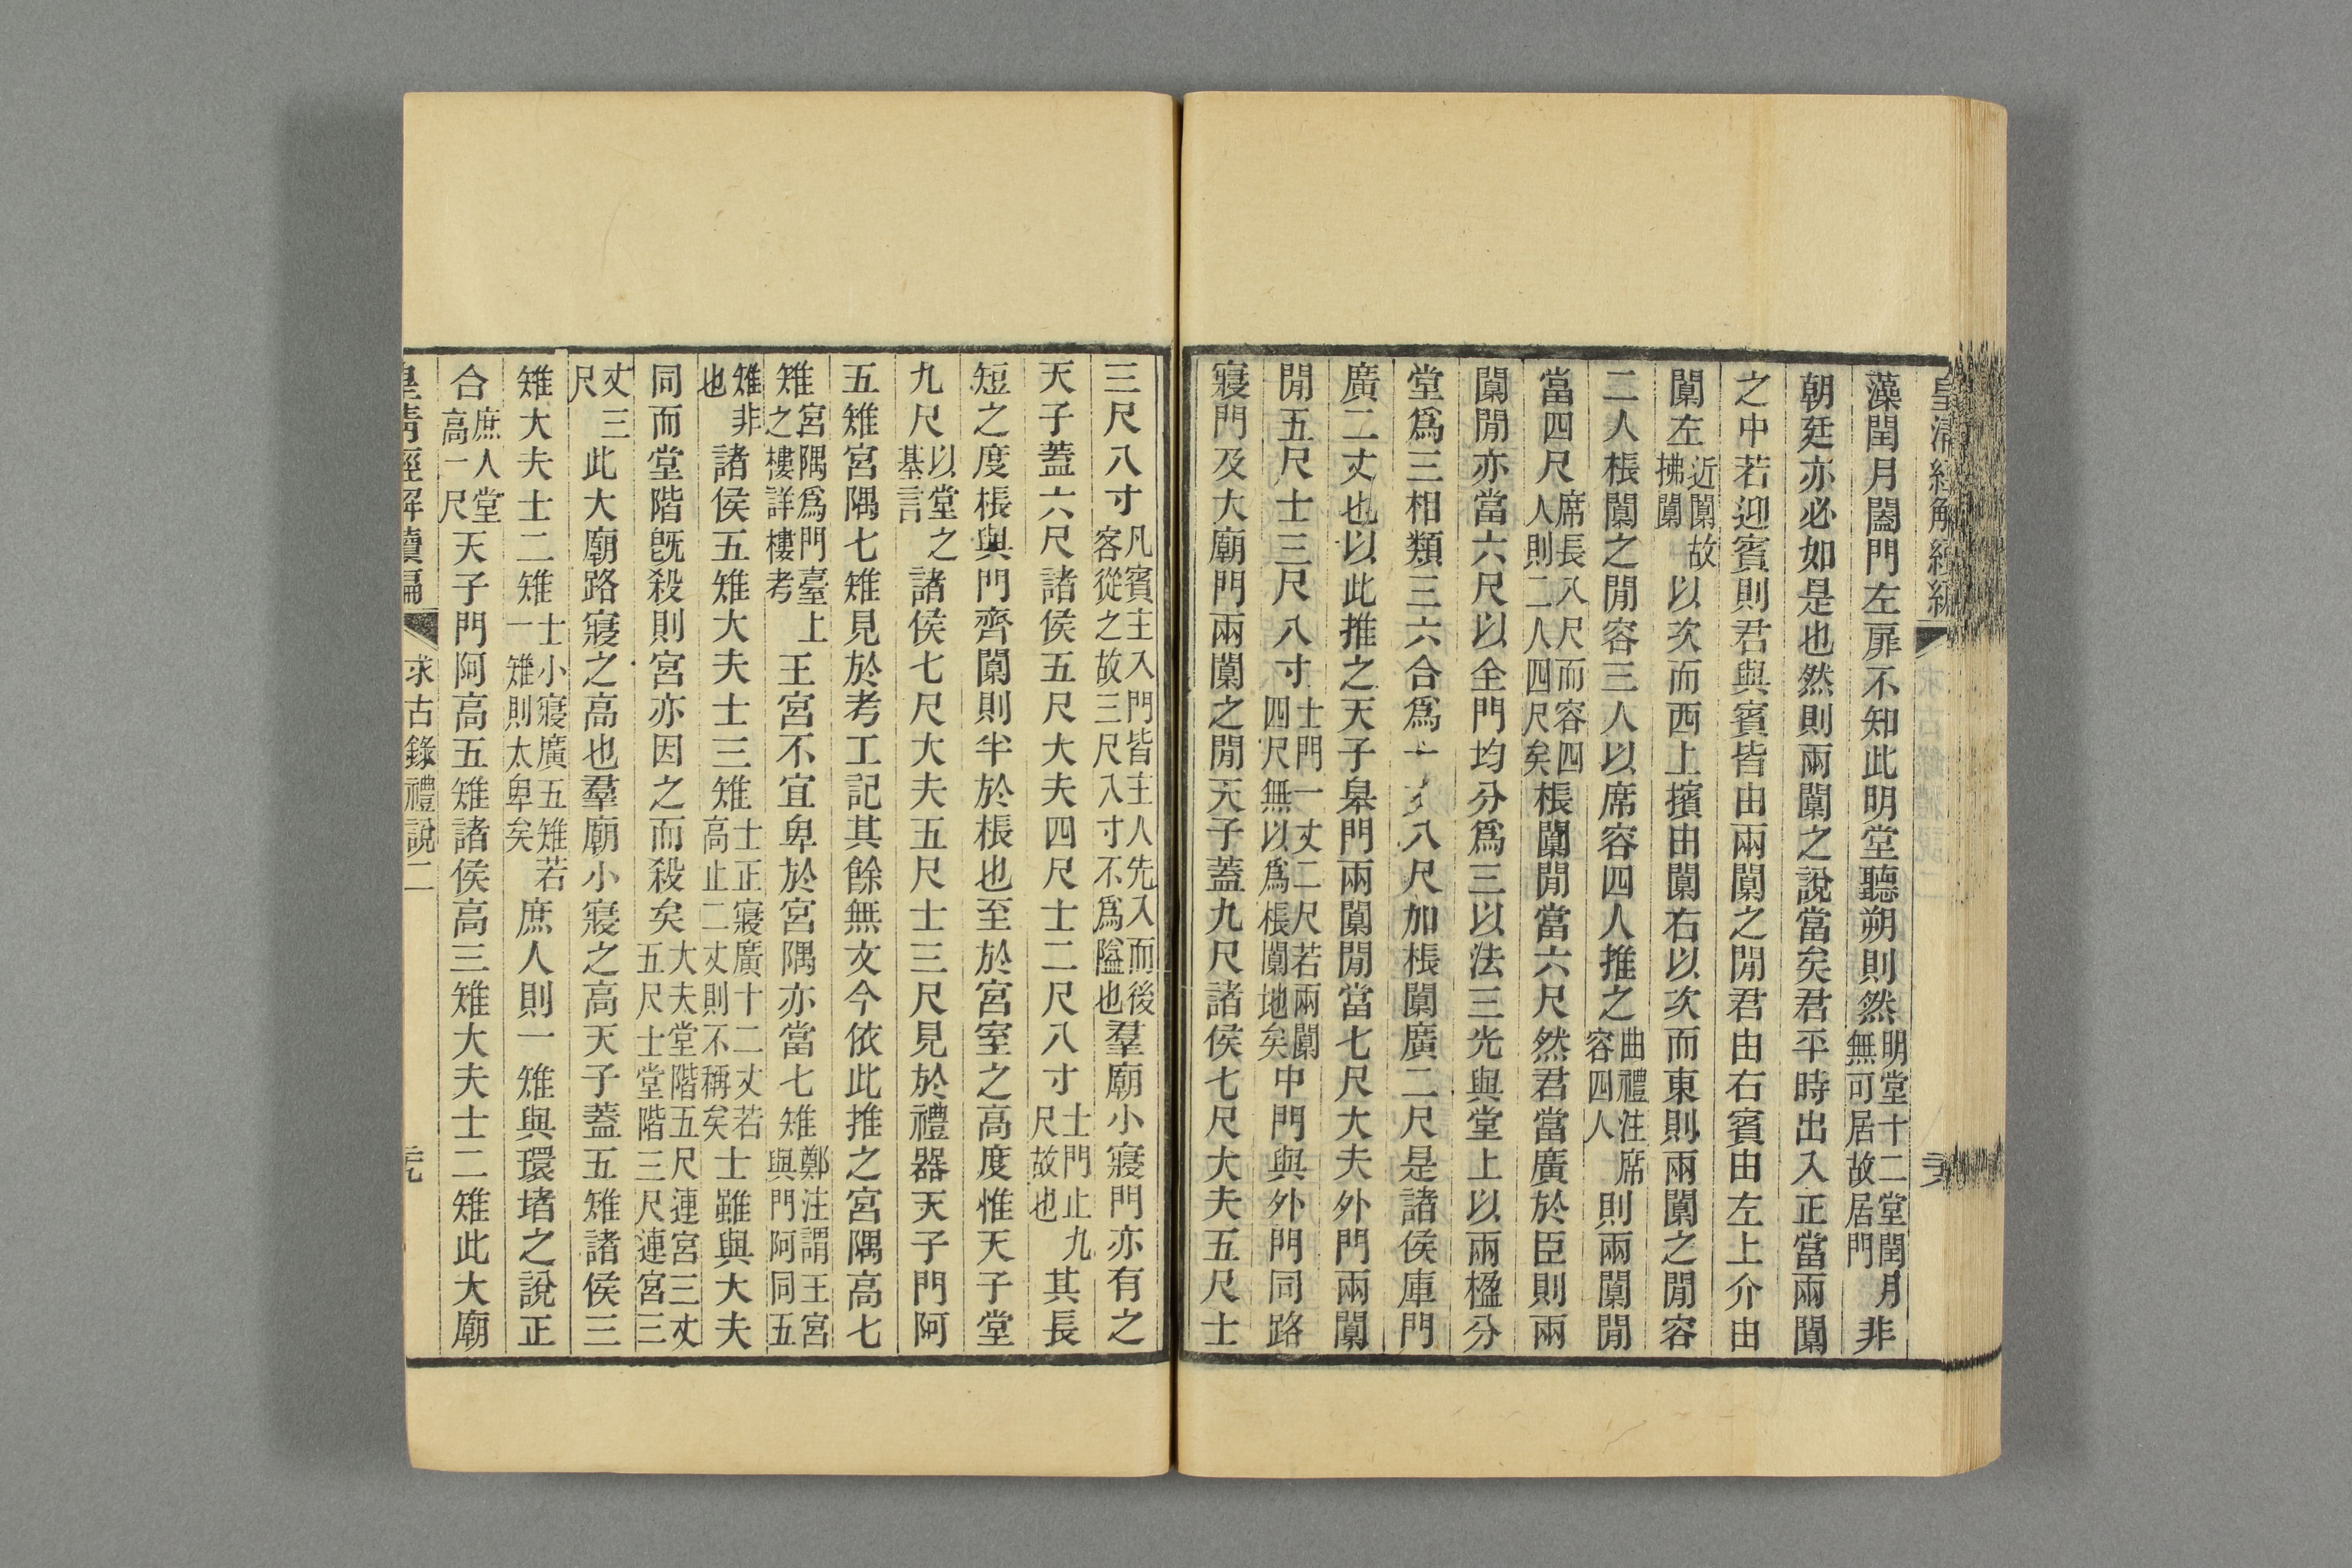 皇清經解續編
藻閏月闔門左扉不知此明堂聽朔則然明堂十二堂閏月無可居故居門非
朝廷亦必如是也然則兩闑之說當矣君平時出入正當兩闑
之中若迎賓則君與賓皆由兩闑之閒君由右賓由左上介由
闑左近闑故拂闑以次而西上擯由闑右以次而東則兩闑之閒容
二人棖闑之閒容三人以席容四人推之曲禮注席容四人則兩闑閒
當四尺席長八尺而容四人則二人四尺矣棖闑閒當六尺然君當廣於臣則兩
闑閒亦當六尺以全門均分爲三以法三光與堂上以兩楹分
堂爲三相類三六合爲一丈八尺加棖闑廣二尺是諸侯庫門
廣二丈也以此推之天子皋門兩闑閒當七尺大夫外門兩闑
閒五尺士三尺八寸士門一丈二尺若兩闑四尺無以爲棖闑地矣中門與外門同路
寢門及大廟門兩闑之閒天子蓋九尺諸侯七尺大夫五尺士
三尺八寸凡賓主入門皆主人先入而後客從之故三尺八寸不爲隘也羣廟小寢門亦有之
天子蓋六尺諸侯五尺大夫四尺士二尺八寸士門止九尺故也其長
短之度棖與門齊闑則半於棖也至於宮室之高度惟天子堂
九尺以堂之基言諸侯七尺大夫五尺士三尺見於禮器天子門阿
五雉宮隅七雉見於考工記其餘無文今依此推之宮隅高七
雉宮隅爲門臺上之樓詳樓考王宮不宜卑於宮隅亦當七雉鄭注謂王宮與門阿同五
雉非也諸侯五雉大夫士三雉士正寢廣十二丈若高止二丈則不稱矣士雖與大夫
同而堂階旣殺則宮亦因之而殺矣大夫堂階五尺連宮三丈五尺士堂階三尺連宮三
丈三尺此大廟路寢之高也羣廟小寢之高天子蓋五雉諸侯三
雉大夫士二雉士小寢廣五雉若一雉則太卑矣庶人則一雉與環堵之說正
合庶人堂高一尺天子門阿高五雉諸侯高三雉大夫士二雉此大廟
皇清經解續編 求古錄禮說二